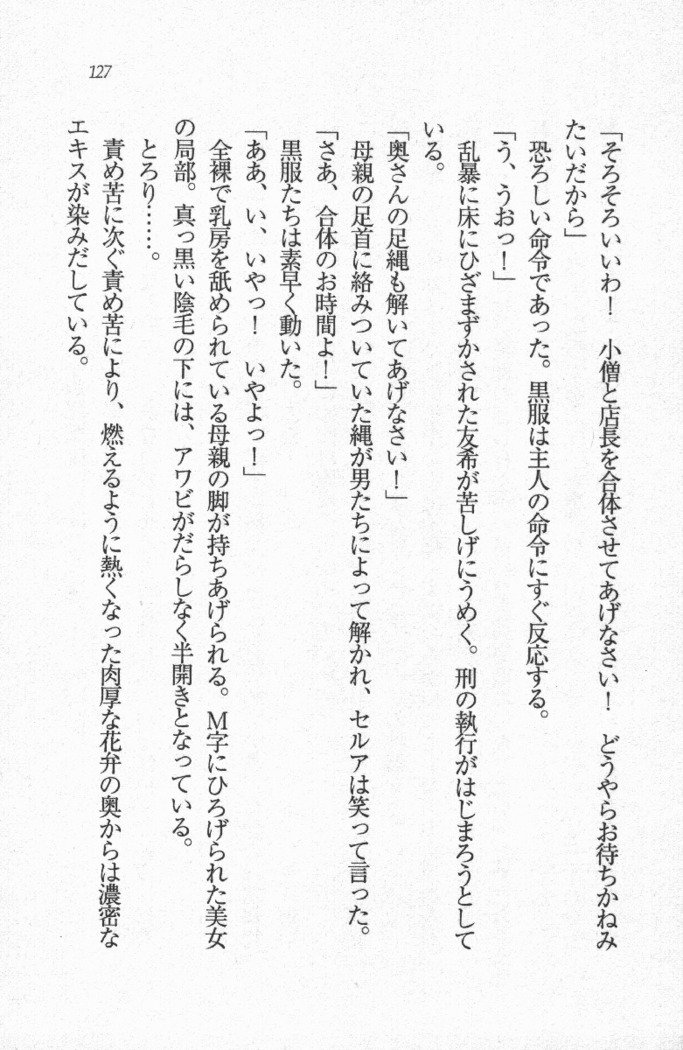 127
「そろそろいいわ！　小僧と店長を合体させてあげなさい！　どうやらお待ちかねみ
たいだから」
　恐ろしい命令であった。黒服は主人の命令にすぐ反応する。
「う、うおっ！」
　乱暴に床にひざまずかされた友希が苦しげにうめく。刑の執行がはじまろうとして
いる。
「奥さんの足縄も解いてあげなさい！」
　母親の足首に絡みついていた縄が男たちによって解かれ、セルアは笑って言った。
「さあ、合体のお時間よ！」
　黒服たちは素早く動いた。
「ああ、い、いやっ！　いやよっ！」
　全裸で乳房を舐められている母親の脚が持ちあげられる。Ｍ字にひろげられた美女
の局部。真っ黒い陰毛の下には、アワビがだらしなく半開きとなっている。
　とろり……。
　責め苦に次ぐ責め苦により、燃えるように熱くなった肉厚な花弁の奥からは濃密な
エキスが染みだしている。